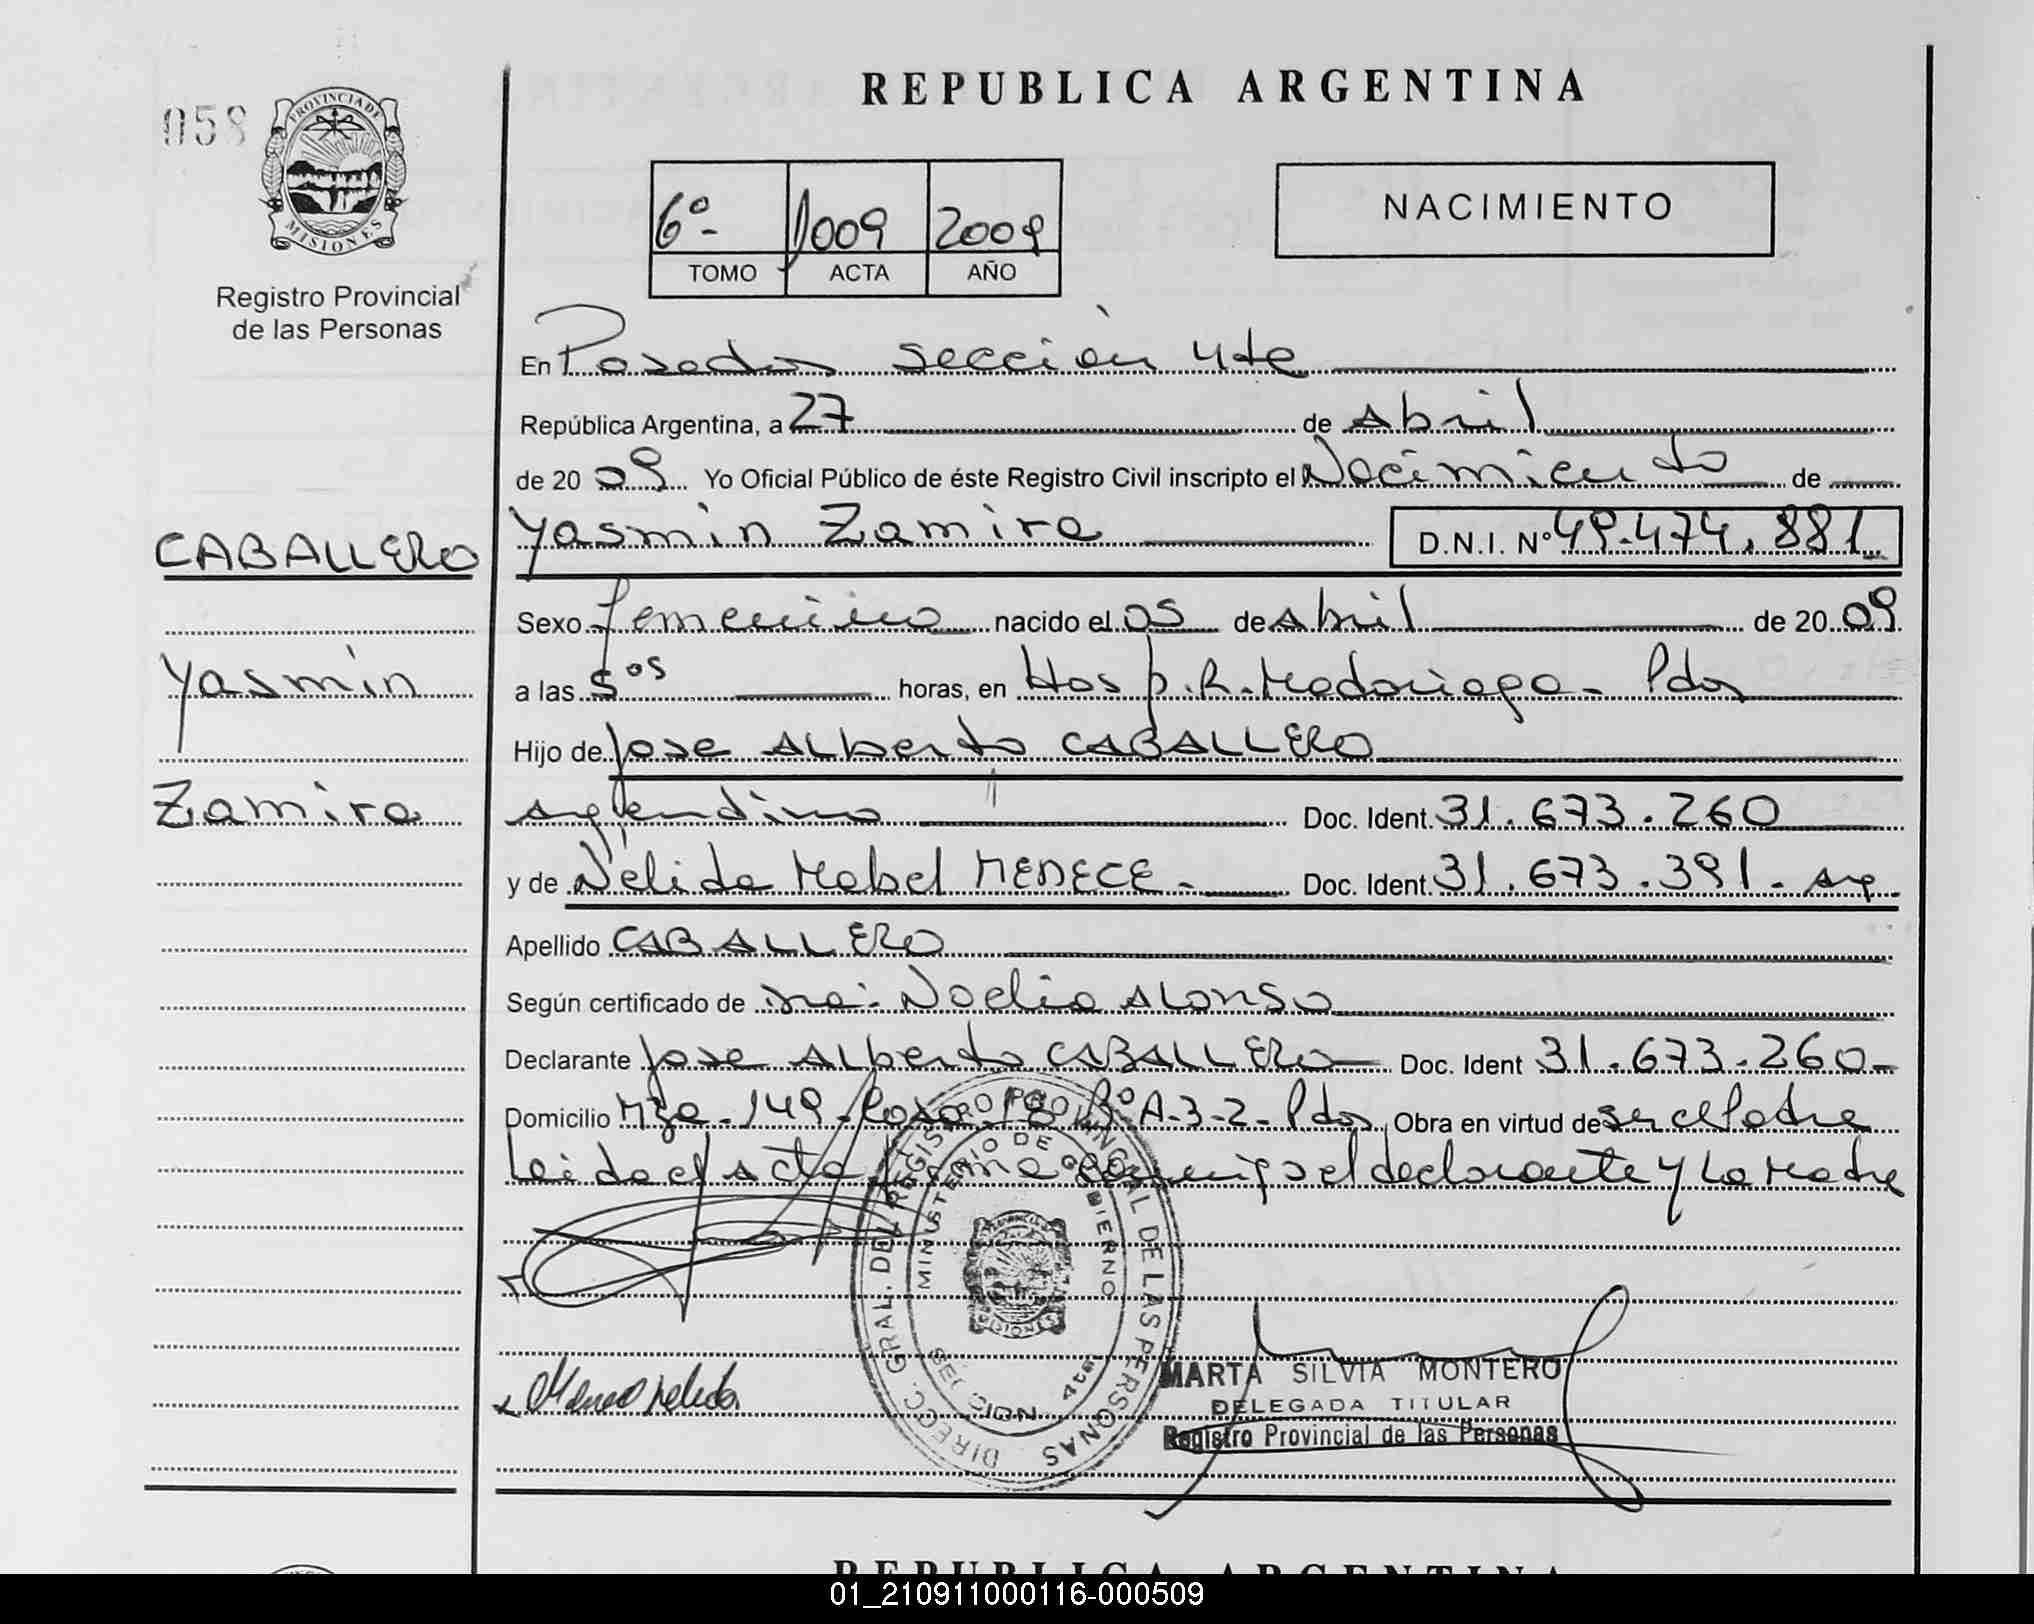 REPUBLICA ARGENTINA
058
PROVINCIA DE MISIONES
Registro Provincial
de las Personas
6º- 1009 2009
TOMO ACTA AÑO
NACIMIENTO
En Posadas sección 4te
República Argentina, a 27 de Abril
de 20 09 Yo Oficial Público de éste Registro Civil inscripto el Nacimiento de
Yasmin Zamira D.N.I. Nº 49.474.881
CABALLERO
Yasmin
Zamira
Sexo femenino nacido el 05 de Abril de 20 09
a las 5⁰⁵ horas, en Hosp. R. Madariaga - Pdas
Hijo de Jose Alberto CABALLERO
argentino Doc. Ident. 31.673.260
y de Nélida Mabel MENECE - Doc. Ident. 31.673.391 - arg.
Apellido CABALLERO
Según certificado de Noelia Alonso
Declarante Jose Alberto CABALLERO Doc. Ident 31.673.260-
Domicilio Mza. 149 - Casa 18 Bº A-3-2- Pdas Obra en virtud de ser el Padre
Leida el Acta firma conmigo el declarante y la Madre
DIRECC. GRAL. DEL REGISTRO PROVINCIAL DE LAS PERSONAS
MINISTERIO DE GOBIERNO
MISIONES
SECCION 4ta.
MARTA SILVIA MONTERO
DELEGADA TITULAR
Registro Provincial de las Personas
REPUBLICA ARGENTINA
01_210911000116-000509